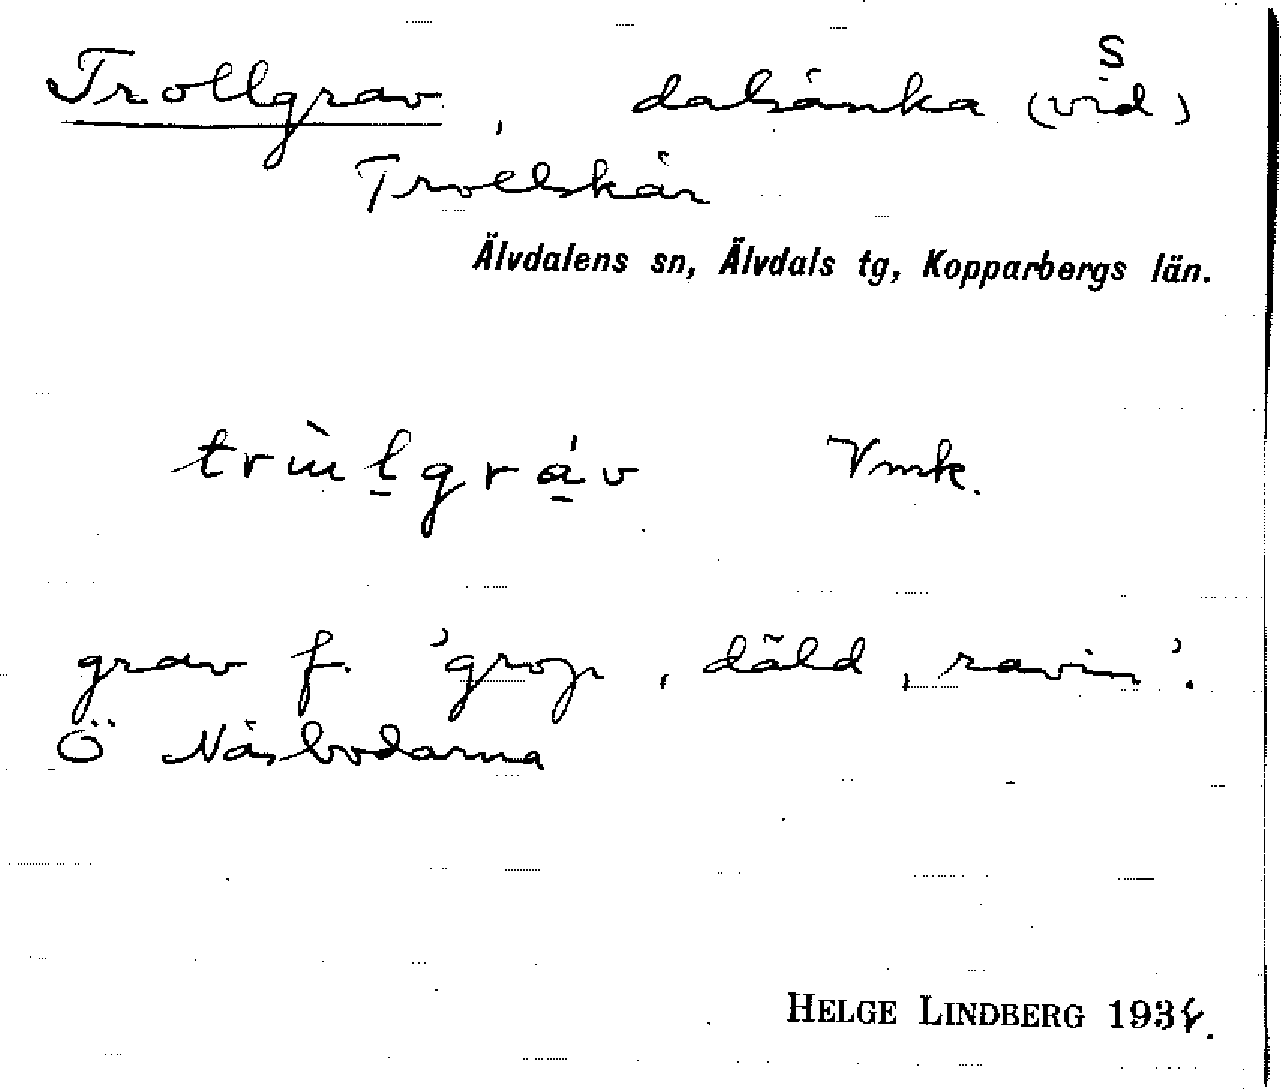 Trollgrav, dalsänka (vid) S
Trollskär
Älvdalens sn, Älvdals tg, Kopparbergs län.
Vmk.
grav f. 'grop, däld, ravin'.
Ö Näsbodarna
HELGE LINDBERG 193